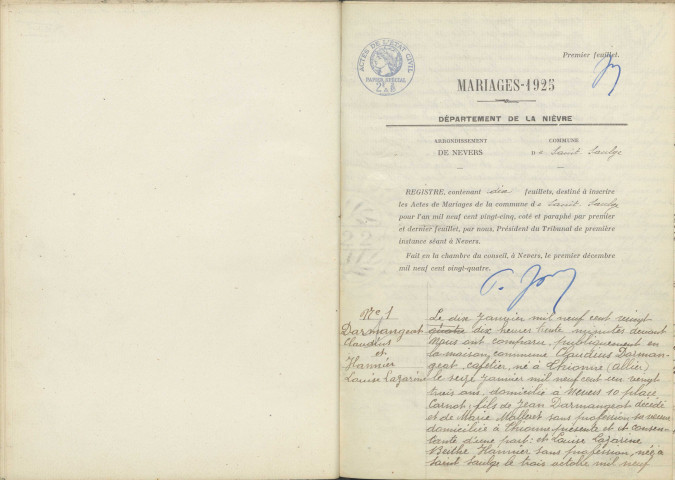 Premier feuillet.
ACTES DE L'ETAT CIVIL
PAPIER SPECIAL
MARIAGES-1925
DÉPARTEMENT DE LA NIÈVRE
ARRONDISSEMENT
DE NEVERS
COMMUNE
De Saint Saulge
REGISTRE, contenant dix feuillets, destiné à inscrire
les Actes de Mariages de la commune de Saint Saulge
pour l'an mil neuf cent vingt-cinq, coté et paraphé par premier
et dernier feuillet, par nous, Président du Tribunal de première
instance séant à Nevers.
Fait en la chambre du conseil, à Nevers, le premier décembre
mil neuf cent vingt-quatre.
No 1
Darmangeat
Claudius
et
Hannier
Louise Lazarine
Le dix janvier mil neuf cent vingt
quatre dix heures trente minutes devant
Nous ont comparu, publiquement en
la maison commune Claudius Darman-
geat, cafetier, né à Thionne (Allier)
le seize janvier mil neuf cent un vingt
trois ans, domicilié à Nevers 10 place
Carnot, fils de Jean Darmangeat décédé
et de Marie Malleret sans profession sa veuve
domiciliée à Thionne présente et consen-
tante d'une part: et Louise Lazarine
Berthe Hannier sans profession, née à
Saint Saulge le trois octobre mil neuf